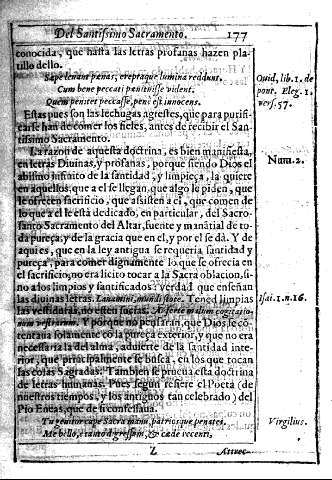 Del Santissimo Sacramento. 177
conocida, que hasta las letras profanas hazen pla-
tillo dello.
Sæpe leuant pœnas, ereptaque lumina reddunt.
Cum bene peccati pænituisse vident.
Quem penitet peccasse, penè est innocens.
Ouid, lib. 1. de
pont. Eleg. 1.
vers. 57.
Estas pues son las lechugas agrestes, que para purifi-
carse han de comer los fieles, antes de recibir el San-
tissimo Sacramento.
La razon de aquesta doctrina, es bien manifiesta,
en letras Diuinas, y profanas, porque siendo Dios el
abismo infinito de la santidad, y limpieça, la quiere
Num. 2.
en aquellos, que a el se llegan, que algo le piden, que
le ofrecen sacrificio, que assisten a el, que comen de
lo que a el le está dedicado, en particular, del Sacro-
santo Sacramento del Altar, fuente y manātial de to-
da pureça, y de la gracia que en el, y por el se dà. Y de
aqui es, que en la ley antigua se requeria santidad y
pureça, para comer dignamente lo que se ofrecia en
el sacrificio, no era licito tocar a la Sacra oblacion, si-
no a los limpios y santificados: verdad que enseñan
las diuinas letras. Lauamini, mundi estote. Tened limpias
Isai. 1. n. 16.
las vestiduras, no esten sucias. Auferte malum cogitatio-
num vestrarum. Y porque no pensaran, que Dios se co-
tentaua solamente cō la pureça exterior, y que no era
necessaria la del alma, aduierte de la santidad inte-
rior, que principalmente se busca, en los que tocan
las cosas Sagradas. Tambien se prueua esta doctrina
de letras humanas. Pues segun refiere el Poeta (de
nuestros tiempos, y los antiguos tan celebrado) del
Pio Eneas, que de si confessaua.
Tu genitor cape Sacra manu, patriosque penates,
Virgilius.
Me bello, è tanto digressum, & cæde recenti,
Z Attrec-